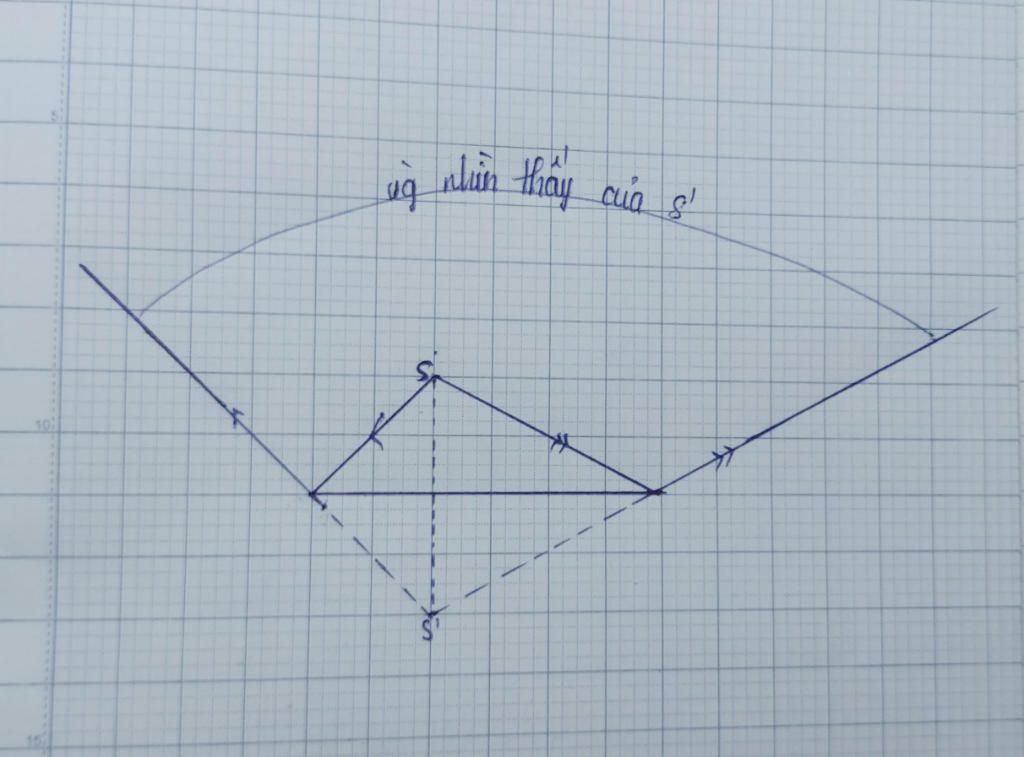 vù nhìn thấy của S'
S
S'
5
10
15